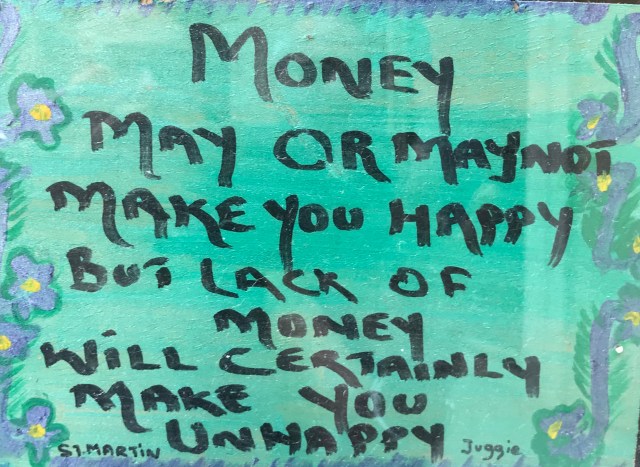 MONEY
MAY OR MAYNOT
MAKE YOU HAPPY
BUT LACK OF
MONEY
WILL CERTAINLY
MAKE YOU
UNHAPPY
ST.MARTIN Juggie